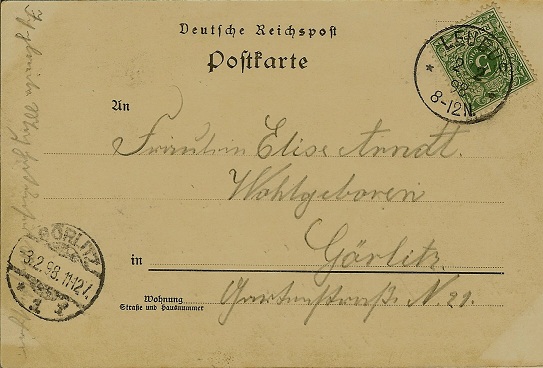 Deutsche Reichspost
Postkarte
An
Fräulein Elise Arndt.
Wohlgeboren
in Görlitz
Wohnung
Straße und Hausnummer
Gartenstraße N. 21.
2. 2. 98
8-12N.
5
GÖRLITZ
3.2.98.11-12V.